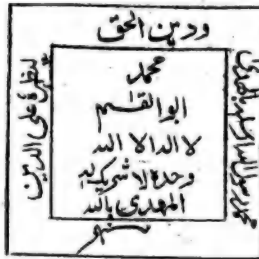 محمد رسول الله ارسله بالهدى
ودين الحق
ليظهره على الدين
محمد
ابو القسم
لا اله الا الله
وحده لا شريك له
المهدى بالله